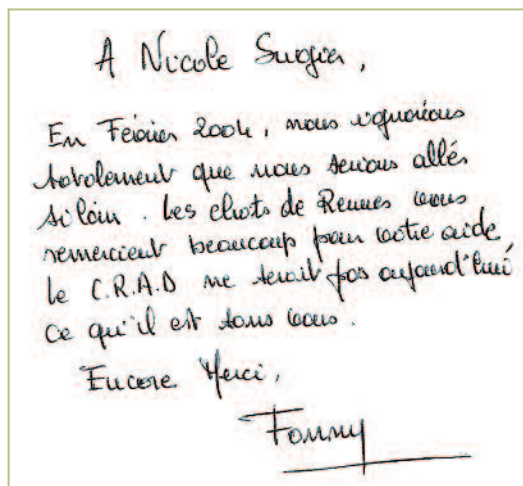 A Nicole Sugier,
En Février 2004, nous ignorions
totalement que nous serions allés
si loin. Les chats de Rennes vous
remercient beaucoup pour votre aide,
le C.R.A.D ne serait pas aujourd'hui
ce qu'il est sans vous.
Encore Merci,
Fanny